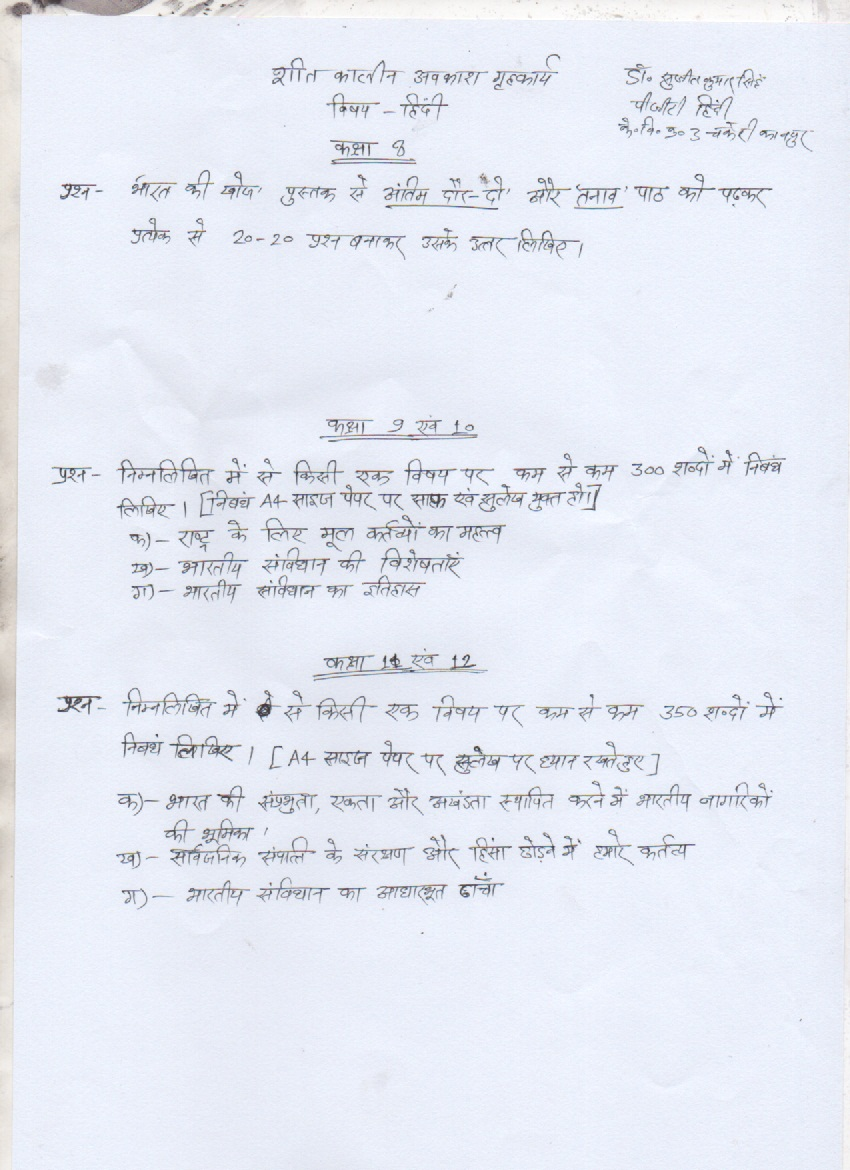 शीत कालीन अवकाश गृहकार्य
डॉ० सुजीत कुमार सिंह
विषय - हिंदी
पीजीटी हिंदी
के० वि० नं० 3 चकेरी कानपुर
कक्षा 8
प्रश्न - भारत की खोज' पुस्तक से अंतिम दौर-दो' और 'तनाव' पाठ को पढ़कर
प्रत्येक से 20-20 प्रश्न बनाकर उसके उत्तर लिखिए।
कक्षा 9 एंव 10
प्रश्न - निम्नलिखित में से किसी एक विषय पर कम से कम 300 शब्दों में निबंध
लिखिए। [निबंध A4 साइज पेपर पर साफ एवं सुलेख युक्त हो।]
क) - राष्ट्र के लिए मूल कर्तव्यों का महत्त्व
ख) - भारतीय संविधान की विशेषताएँ
ग) - भारतीय संविधान का इतिहास
कक्षा 11 एंव 12
प्रश्न - निम्नलिखित में से किसी एक विषय पर कम से कम 350 शब्दों में
निबंध लिखिए। [A4 साइज पेपर पर सुलेख पर ध्यान रखते हुए]
क) - भारत की संप्रभुता, एकता और अखंडता स्थापित करने में भारतीय नागरिकों
की भूमिका।
ख) - सार्वजनिक संपत्ति के संरक्षण और हिंसा छोड़ने में हमारे कर्तव्य
ग) - भारतीय संविधान का आधारभूत ढाँचा